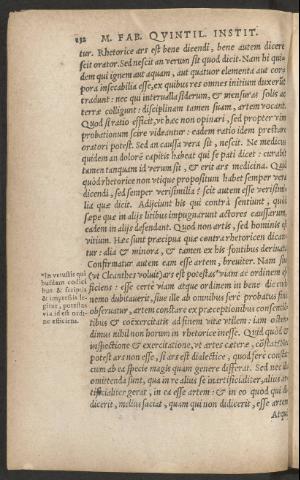 132 M. FAB. QVINTIL. INSTIT.
tur. Rhetorice ars est bene dicendi, bene autem dicere
scit orator. Sed nescit an verum sit quod dicit. Nam hi qui
dem qui ignem aut aquam, aut quatuor elementa aut cor
pora insecabilia esse, ex quibus res omnes initium duxerūt
tradunt: nec qui interualla siderum, & mensuras solis ac
terræ colligunt: disciplinam tamen suam, artem vocant.
Quod si ratio efficit, vt hæc non opinari, sed propter vim
probationum scire videantur: eadem ratio idem præstare
oratori potest. Sed an caussa vera sit, nescit. Ne medicus
quidem an dolorē capitis habeat qui se pati dicit: curabit
tamen tanquam id verum sit, & erit ars medicina. Quid
quòd rhetorice non vtique propositum habet semper vera
dicendi, sed semper verisimilia: scit autem esse verisimi-
lia quæ dicit. Adijciunt his qui contrà sentiunt, quòd
sæpe quæ in alijs litibus impugnarunt actores caussarum,
eadem in alijs defendant. Quod non artis, sed hominis est
vitium. Hæc sunt præcipua quæ contra rhetoricen dican-
tur: alia & minora, & tamen ex his fontibus deriuata.
Confirmatur autem eam esse artem, breuiter. Nam siue
(vt Cleanthes voluit) ars est potestas *viam ac ordinem ef
ficiens: esse certè viam atque ordinem in bene dicendo
nemo dubitauerit, siue ille ab omnibus ferè probatus finis
obseruatur, artem constare ex præceptionibus consentien
tibus & coëxercitatis ad finem vitæ vtilem: iam osten-
dimus nihil non horum in rhetorice inesse. Quid quòd &
inspectione & exercitatione, vt artes cæteræ, cōstat? Nec
potest ars non esse, si ars est dialectice, quod ferè constat:
cum ab ea specie magis quàm genere differat. Sed nec illa
omittenda sunt, qua in re alius se inartificialiter, alius ar-
tificialiter gerat, in ea esse artem: & in eo quod qui di-
dicerit, melius faciat, quàm qui non didicerit, esse artem
Atqui
*In vetustis qui
busdam codici
bus & scriptis
& impressis le-
gitur, potestas
via id est ordi-
ne efficiens.